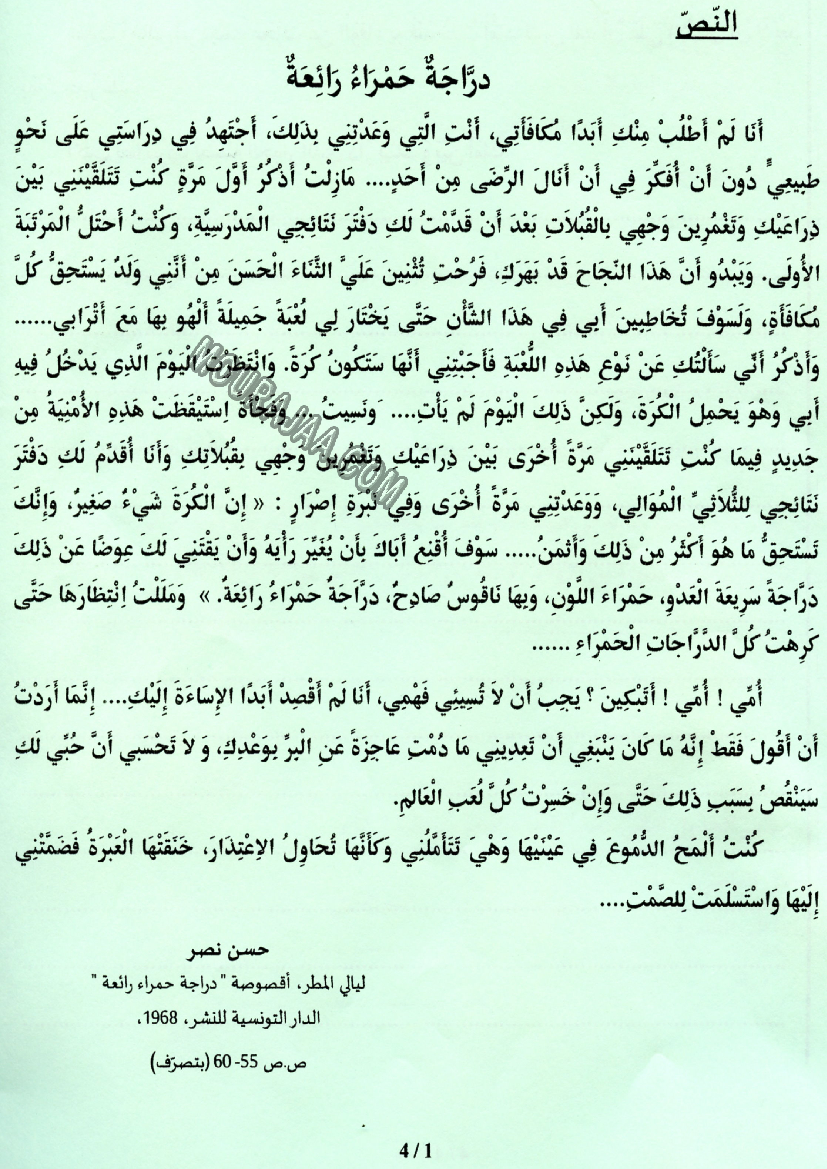 النّصّ
درَّاجَةٌ حَمْرَاءُ رَائِعَةٌ
أَنَا لَمْ أَطْلُبْ مِنْكِ أَبَدًا مُكَافَأَتِي، أَنْتِ الَّتِي وَعَدْتِنِي بِذَلِكَ، أَجْتَهِدُ فِي دِرَاسَتِي عَلَى نَحْوٍ
طَبِيعِيٍّ دُونَ أَنْ أُفَكِّرَ فِي أَنْ أَنَالَ الرِّضَى مِنْ أَحَدٍ.... مَازِلْتُ أَذْكُرُ أَوَّلَ مَرَّةٍ كُنْتِ تَتَلَقَّيْنَنِي بَيْنَ
ذِرَاعَيْكِ وَتَغْمُرِينَ وَجْهِي بِالْقُبُلَاتِ بَعْدَ أَنْ قَدَّمْتُ لَكِ دَفْتَرَ نَتَائِجِي الْمَدْرَسِيَّةِ، وَكُنْتُ أَحْتَلُّ الْمَرْتَبَةَ
الأُولَى. وَيَبْدُو أَنَّ هَذَا النَّجَاحَ قَدْ بَهَرَكِ، فَرُحْتِ تُثْنِينَ عَلَيَّ الثَّنَاءَ الْحَسَنَ مِنْ أَنَّنِي وَلَدٌ يَسْتَحِقُّ كُلَّ
مُكَافَأَةٍ، وَلَسَوْفَ تُخَاطِبِينَ أَبِي فِي هَذَا الشَّأْنِ حَتَّى يَخْتَارَ لِي لُعْبَةً جَمِيلَةً أَلْهُو بِهَا مَعَ أَتْرَابِي......
وَأَذْكُرُ أَنِّي سَأَلْتُكِ عَنْ نَوْعِ هَذِهِ اللُّعْبَةِ فَأَجَبْتِنِي أَنَّهَا سَتَكُونُ كُرَةً. وَانْتَظَرْتُ الْيَوْمَ الَّذِي يَدْخُلُ فِيهِ
أَبِي وَهْوَ يَحْمِلُ الْكُرَةَ، وَلَكِنَّ ذَلِكَ الْيَوْمَ لَمْ يَأْتِ.... وَنَسِيتُ... وَفَجْأَةً اِسْتَيْقَظَتْ هَذِهِ الأُمْنِيَةُ مِنْ
جَدِيدٍ فِيمَا كُنْتِ تَتَلَقَّيْنَنِي مَرَّةً أُخْرَى بَيْنَ ذِرَاعَيْكِ وَتَغْمُرِينَ وَجْهِي بِقُبُلَاتِكِ وَأَنَا أُقَدِّمُ لَكِ دَفْتَرَ
نَتَائِجِي لِلثُّلَاثِيِّ الْمُوَالِي، وَوَعَدْتِنِي مَرَّةً أُخْرَى وَفِي نَبْرَةِ إِصْرَارٍ : « إِنَّ الْكُرَةَ شَيْءٌ صَغِيرٌ، وَإِنَّكَ
تَسْتَحِقُّ مَا هُوَ أَكْثَرُ مِنْ ذَلِكَ وَأَثمَنُ..... سَوْفَ أُقْنِعُ أَبَاكَ بِأَنْ يُغَيِّرَ رَأْيَهُ وَأَنْ يَقْتَنِيَ لَكَ عِوَضًا عَنْ ذَلِكَ
دَرَّاجَةً سَرِيعَةَ الْعَدْوِ، حَمْرَاءَ اللَّوْنِ، وَبِهَا نَاقُوسٌ صَادِحٌ، دَرَّاجَةٌ حَمْرَاءُ رَائِعَةٌ. » وَمَلَلْتُ اِنْتِظَارَهَا حَتَّى
كَرِهْتُ كُلَّ الدَّرَّاجَاتِ الْحَمْرَاءِ ......
أُمِّي ! أُمِّي ! أَتَبْكِينَ ؟ يَجِبُ أَنْ لَا تُسِيئِي فَهْمِي، أَنَا لَمْ أَقْصِدْ أَبَدًا الإِسَاءَةَ إِلَيْكِ.... إِنَّمَا أَرَدْتُ
أَنْ أَقُولَ فَقَطْ إِنَّهُ مَا كَانَ يَنْبَغِي أَنْ تَعِدِينِي مَا دُمْتِ عَاجِزَةً عَنِ الْبِرِّ بِوَعْدِكِ، وَ لَا تَحْسَبِي أَنَّ حُبِّي لَكِ
سَيَنْقُصُ بِسَبَبِ ذَلِكَ حَتَّى وَإِنْ خَسِرْتُ كُلَّ لُعَبِ الْعَالَمِ.
كُنْتُ أَلْمَحُ الدُّمُوعَ فِي عَيْنَيْهَا وَهْيَ تَتَأَمَّلُنِي وَكَأَنَّهَا تُحَاوِلُ الاِعْتِذَارَ، خَنَقَتْهَا الْعَبْرَةُ فَضَمَّتْنِي
إِلَيْهَا وَاسْتَسْلَمَتْ لِلصَّمْتِ....
حسن نصر
ليالي المطر، أقصوصة " دراجة حمراء رائعة "
الدار التونسية للنشر، 1968،
ص.ص 55- 60 (بتصرّف)
4 / 1
MOURAJAA.COM